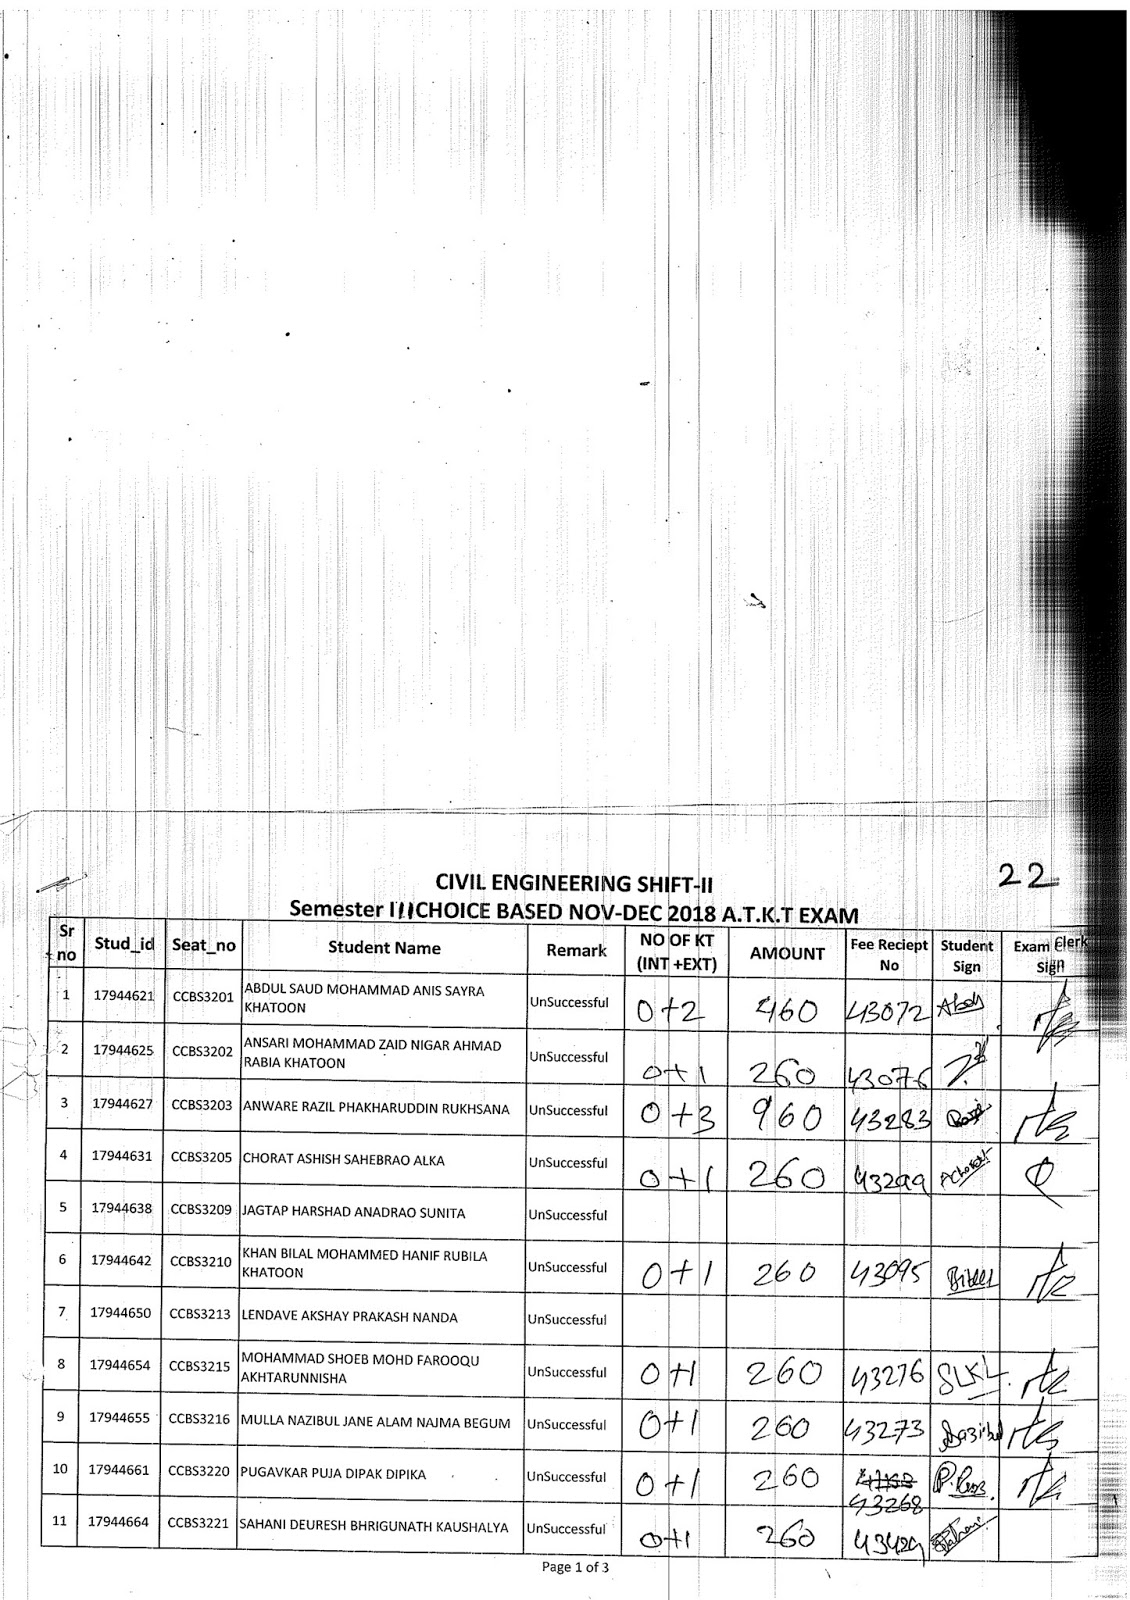 22
CIVIL ENGINEERING SHIFT-II
Semester III CHOICE BASED NOV-DEC 2018 A.T.K.T EXAM
Sr no Stud_id Seat_no Student Name Remark NO OF KT (INT +EXT) AMOUNT Fee Reciept No Student Sign Exam Clerk Sign
1 17944621 CCBS3201 ABDUL SAUD MOHAMMAD ANIS SAYRA KHATOON UnSuccessful 0+2 460 43072
2 17944625 CCBS3202 ANSARI MOHAMMAD ZAID NIGAR AHMAD RABIA KHATOON UnSuccessful 0+1 260 43076
3 17944627 CCBS3203 ANWARE RAZIL PHAKHARUDDIN RUKHSANA UnSuccessful 0+3 960 43283
4 17944631 CCBS3205 CHORAT ASHISH SAHEBRAO ALKA UnSuccessful 0+1 260 43299
5 17944638 CCBS3209 JAGTAP HARSHAD ANADRAO SUNITA UnSuccessful
6 17944642 CCBS3210 KHAN BILAL MOHAMMED HANIF RUBILA KHATOON UnSuccessful 0+1 260 43095
7 17944650 CCBS3213 LENDAVE AKSHAY PRAKASH NANDA UnSuccessful
8 17944654 CCBS3215 MOHAMMAD SHOEB MOHD FAROOQU AKHTARUNNISHA UnSuccessful 0+1 260 43276
9 17944655 CCBS3216 MULLA NAZIBUL JANE ALAM NAJMA BEGUM UnSuccessful 0+1 260 43273
10 17944661 CCBS3220 PUGAVKAR PUJA DIPAK DIPIKA UnSuccessful 0+1 260 43268
11 17944664 CCBS3221 SAHANI DEURESH BHRIGUNATH KAUSHALYA UnSuccessful 0+1 260 43429
Page 1 of 3